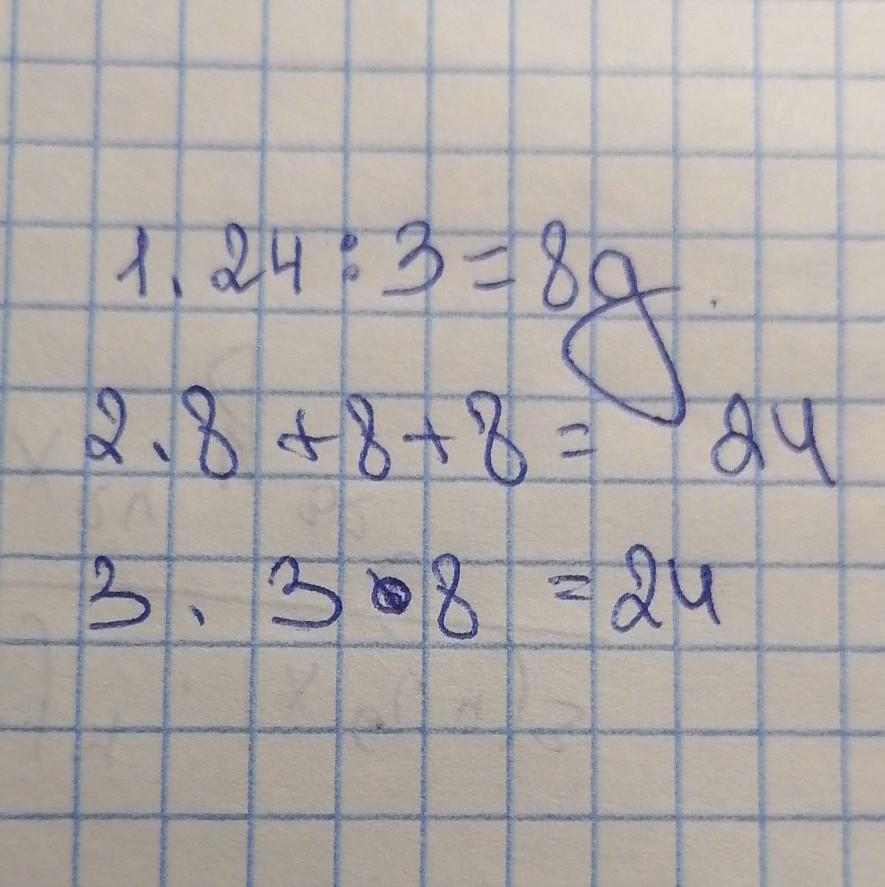 1. 24 : 3 = 8g
2. 8 + 8 + 8 = 24
3. 3 • 8 = 24